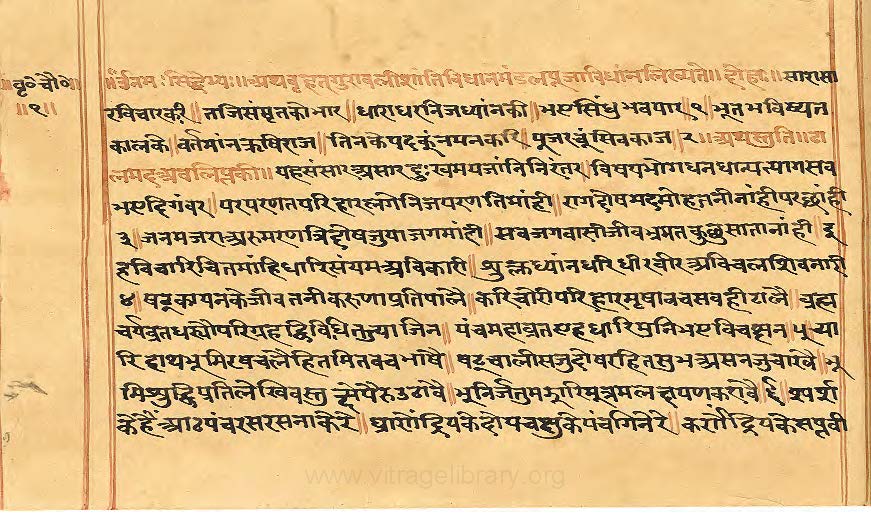 ॥ वृ० चौ० ॥
॥ १ ॥
॥ ॐ नमः सिद्धेभ्यः ॥ अथ बृहत् गुरावली शांति विधान मंडल पूजा विधांन लिख्यते ॥ दोहा ॥ सारासा
रविचारकी ॥ तजि संसृतको भार ॥ धाराधर निज ध्यांनकी ॥ भए सिंधु भव पार १ भूत भविष्यत
कालके ॥ वर्तमांन ऋषिराज ॥ तिनके पदकूं नमन करि ॥ पूज रचूं सिवकाज ॥ २ ॥ अथ स्तुति ॥ ढा
ल मद अवलिप्तकी ॥ यह संसार असार दुःखमय जांनि निरंतर ॥ विषय भोग धन धान्य त्याग सव
भए दिगंवर ॥ पर परणत परिहार लगे निज परणति मांही ॥ राग दोष मद मोह तनी नांही परछांही
३ ॥ जनम जरा अरु मरण त्रिदोष जु या जग मांही ॥ सव जगवासी जीव भ्रमत कुछु साता नांही ॥ इ
ह विचारि चित मांहि धारि संयम अविकारी ॥ शुक्लध्यांन धरि धीर वीर अविचल शिवनारी
४ ॥ षट्कायनके जीव तनी करुणा प्रतिपालै ॥ करि चोरी परिहार मृषा वच सवही टालै ॥ ब्रह्म
चर्य व्रत धर्यो परिग्रह द्विविधि तज्या जिन ॥ पंच महाव्रत एह धारि मुनि भए विचक्षन ५ च्या
रि हाथ भूमि रष चलै हित मित वच भाषै ॥ षट्चालीस जु दोष रहित सुभ असन जु चाषै ॥ भू
मि शुद्धि प्रतिलेखि वस्तु क्षेपै रु उठावै ॥ भू निर्जंतु मझारि मूत्र मल क्षपण करावै ॥ ६ ॥ स्पर्श
के हैं आठ पंच रस रसनाके रे ॥ घ्राणेंद्रियके दोय चक्षुके पंच गिनेरे ॥ कर्णेंद्रियके सप्त वी
www.vitragelibrary.org